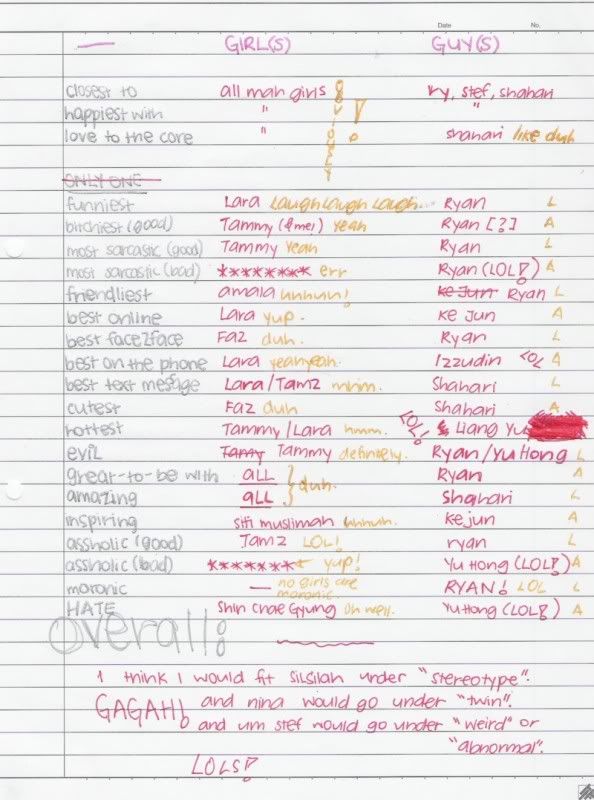 Date No.
— GIRL(S) GUY(S)
closest to all mah girls OBVIOUSLY! ry, stef, shahari
happiest with " "
love to the core " shahari like duh
ONLY ONE
funniest Lara laugh laugh laugh... Ryan L
bitchiest (good) Tammy (& me!) yeah Ryan [?] A
most sarcastic (good) Tammy yeah Ryan L
most sarcastic (bad) ******** err Ryan (LOL!) A
friendliest amala uhhuh! ke Jun Ryan L
best online Lara yup. ke jun A
best face2face Faz duh. Ryan L
best on the phone Lara yeahyeah. Izzudin LOL A
best text message Lara/Tamz mhm. Shahari L
cutest Faz duh Shahari A
hottest Tammy/Lara hmm. LOL! Liang Yu
evil Tamy Tammy definitely. Ryan/Yu Hong L
great-to-be with all } duh. Ryan A
amazing all Shahari L
inspiring siti muslimah uhhuh. kejun A
assholic (good) Tamz LOL! ryan L
assholic (bad) ******** yup! Yu Hong (LOL!) A
moronic — no girls are moronic. RYAN! LOL L
HATE Shin Chae Gyung oh well. Yu Hong (LOL!) A
Overall:
I think I would fit silsilah under "stereotype".
GAGAH! and nina would go under "twin".
and um stef would go under "weird" or
"abnormal".
LOLS!